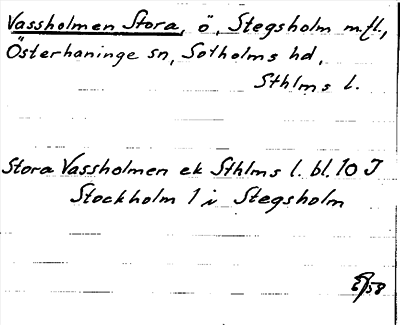 Vassholmen Stora, ö, Stegsholm m.fl.,
Österhaninge sn, Sotholms hd,
Sthlms l.
Stora Vassholmen ek Sthlms l. bl. 10 J
Stockholm 1 i Stegsholm
58